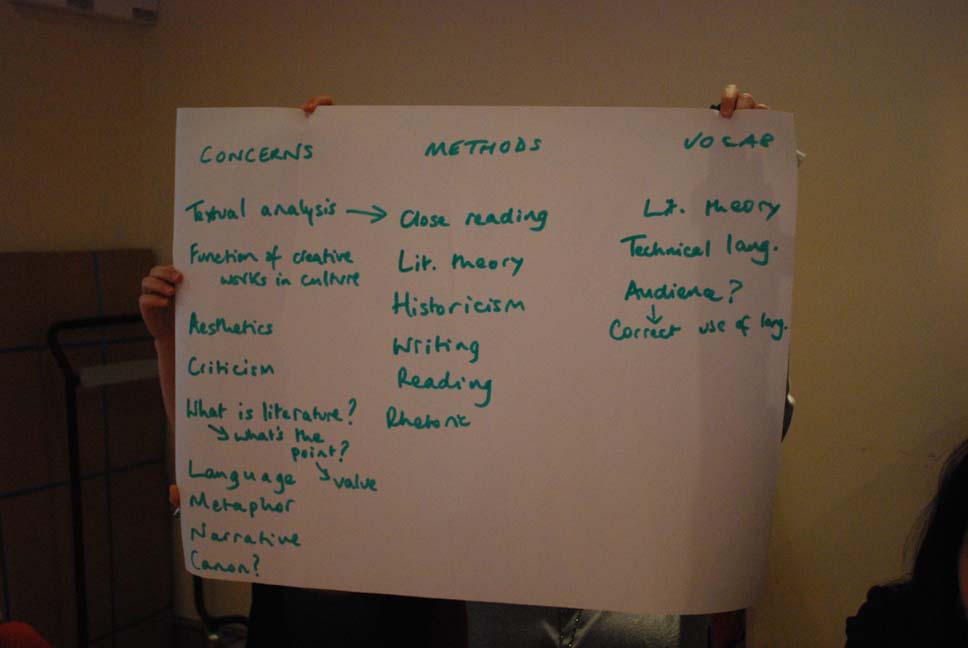 CONCERNS
Textual analysis →
Function of creative
works in culture
Aesthetics
Criticism
What is literature?
↘ what's the
point?
↘ value
Language
Metaphor
Narrative
Canon?
METHODS
Close reading
Lit. theory
Historicism
Writing
Reading
Rhetoric
VOCAB
Lit. theory
Technical lang.
Audience?
↓
Correct use of lang.